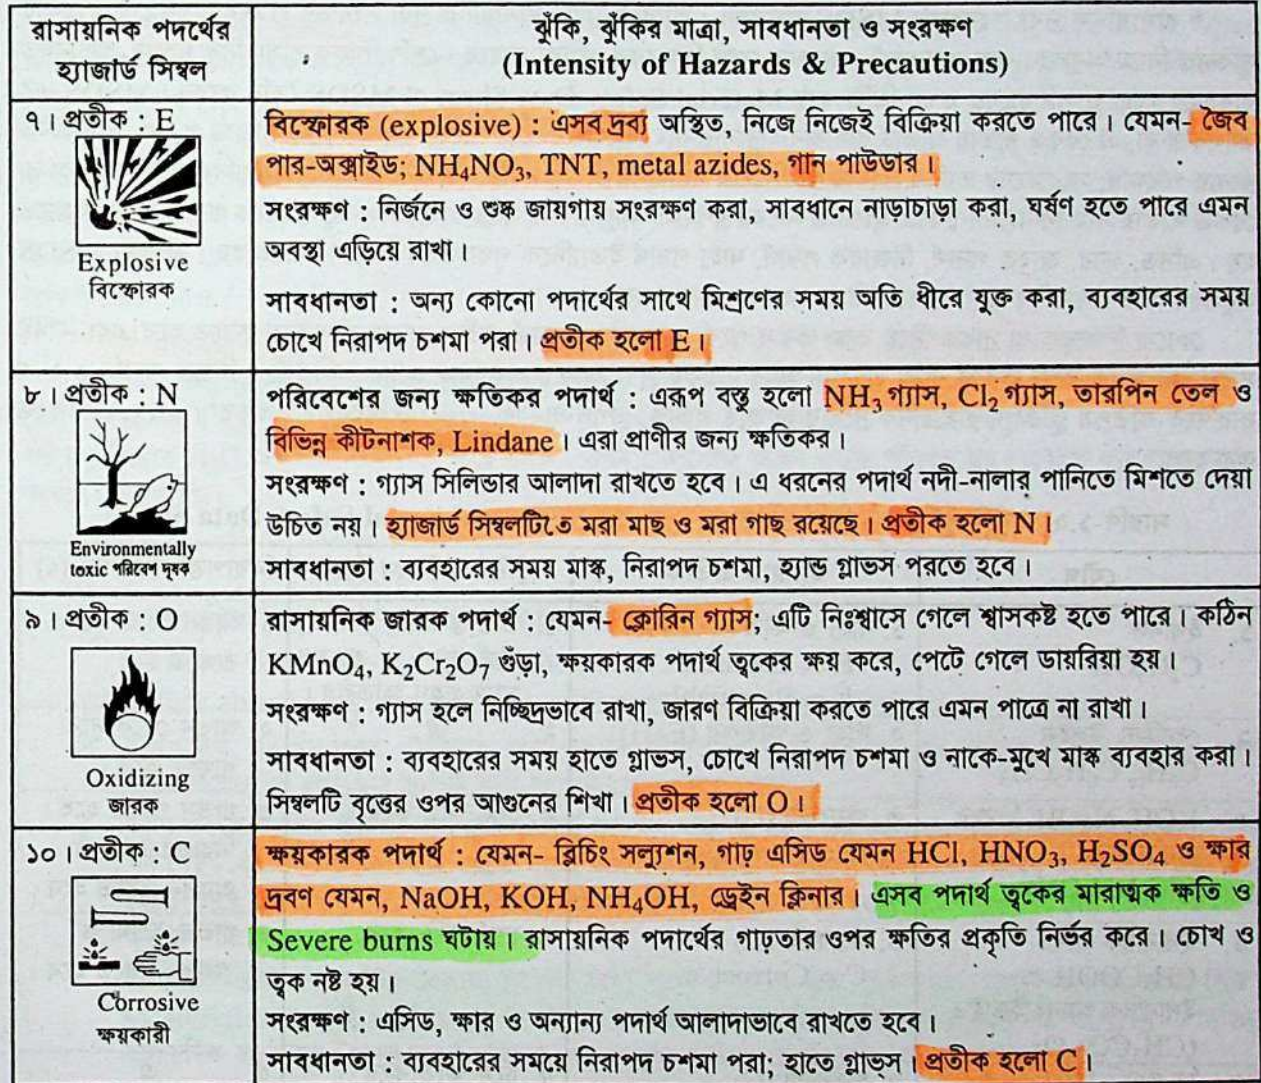 রাসায়নিক পদার্থের
হ্যাজার্ড সিম্বল
ঝুঁকি, ঝুঁকির মাত্রা, সাবধানতা ও সংরক্ষণ
(Intensity of Hazards & Precautions)
৭। প্রতীক : E
Explosive
বিস্ফোরক
বিস্ফোরক (explosive) : এসব দ্রব্য অস্থিত, নিজে নিজেই বিক্রিয়া করতে পারে। যেমন- জৈব
পার-অক্সাইড; NH₄NO₃, TNT, metal azides, গান পাউডার।
সংরক্ষণ : নির্জনে ও শুষ্ক জায়গায় সংরক্ষণ করা, সাবধানে নাড়াচাড়া করা, ঘর্ষণ হতে পারে এমন
অবস্থা এড়িয়ে রাখা।
সাবধানতা : অন্য কোনো পদার্থের সাথে মিশ্রণের সময় অতি ধীরে যুক্ত করা, ব্যবহারের সময়
চোখে নিরাপদ চশমা পরা। প্রতীক হলো E।
৮। প্রতীক : N
Environmentally
toxic পরিবেশ দূষক
পরিবেশের জন্য ক্ষতিকর পদার্থ : এরূপ বস্তু হলো NH₃ গ্যাস, Cl₂ গ্যাস, তারপিন তেল ও
বিভিন্ন কীটনাশক, Lindane। এরা প্রাণীর জন্য ক্ষতিকর।
সংরক্ষণ : গ্যাস সিলিন্ডার আলাদা রাখতে হবে। এ ধরনের পদার্থ নদী-নালার পানিতে মিশতে দেয়া
উচিত নয়। হ্যাজার্ড সিম্বলটিতে মরা মাছ ও মরা গাছ রয়েছে। প্রতীক হলো N।
সাবধানতা : ব্যবহারের সময় মাস্ক, নিরাপদ চশমা, হ্যান্ড গ্লাভস পরতে হবে।
৯। প্রতীক : O
Oxidizing
জারক
রাসায়নিক জারক পদার্থ : যেমন- ক্লোরিন গ্যাস; এটি নিঃশ্বাসে গেলে শ্বাসকষ্ট হতে পারে। কঠিন
KMnO₄, K₂Cr₂O₇ গুঁড়া, ক্ষয়কারক পদার্থ ত্বকের ক্ষয় করে, পেটে গেলে ডায়রিয়া হয়।
সংরক্ষণ : গ্যাস হলে নিচ্ছিদ্রভাবে রাখা, জারণ বিক্রিয়া করতে পারে এমন পাত্রে না রাখা।
সাবধানতা : ব্যবহারের সময় হাতে গ্লাভস, চোখে নিরাপদ চশমা ও নাকে-মুখে মাস্ক ব্যবহার করা।
সিম্বলটি বৃত্তের ওপর আগুনের শিখা। প্রতীক হলো O।
১০। প্রতীক : C
Corrosive
ক্ষয়কারী
ক্ষয়কারক পদার্থ : যেমন- ব্লিচিং সল্যুশন, গাঢ় এসিড যেমন HCl, HNO₃, H₂SO₄ ও ক্ষার
দ্রবণ যেমন, NaOH, KOH, NH₄OH, ড্রেইন ক্লিনার। এসব পদার্থ ত্বকের মারাত্মক ক্ষতি ও
Severe burns ঘটায়। রাসায়নিক পদার্থের গাঢ়তার ওপর ক্ষতির প্রকৃতি নির্ভর করে। চোখ ও
ত্বক নষ্ট হয়।
সংরক্ষণ : এসিড, ক্ষার ও অন্যান্য পদার্থ আলাদাভাবে রাখতে হবে।
সাবধানতা : ব্যবহারের সময়ে নিরাপদ চশমা পরা; হাতে গ্লাভ্‌স। প্রতীক হলো C।